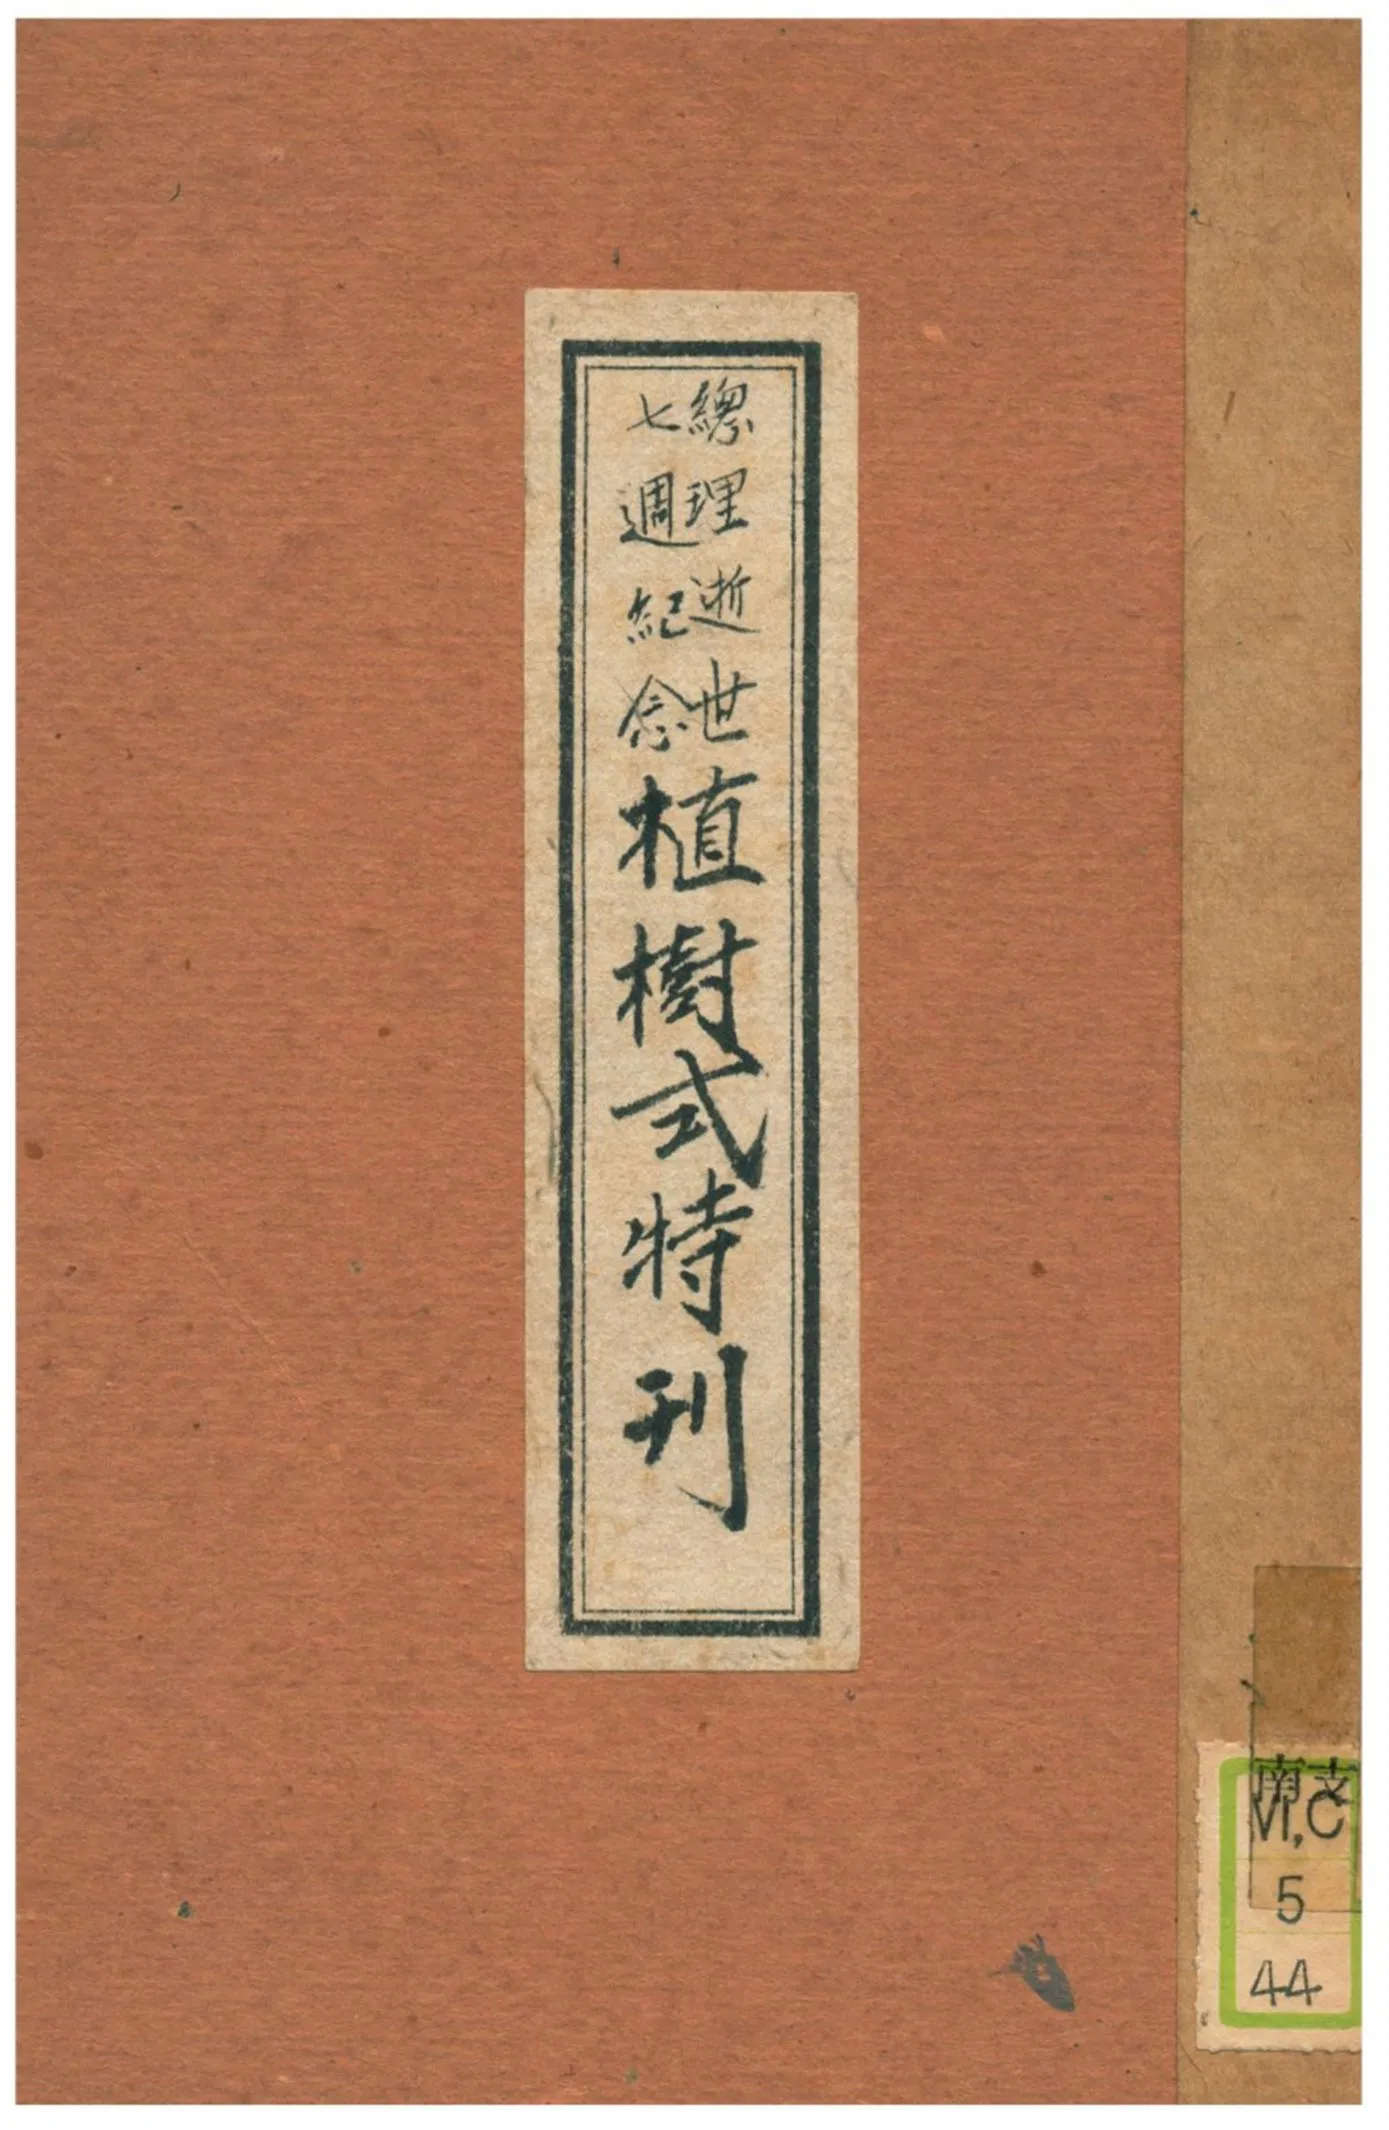 總理逝世
七週紀念
植樹式特刊
南支
VI,C
5
44